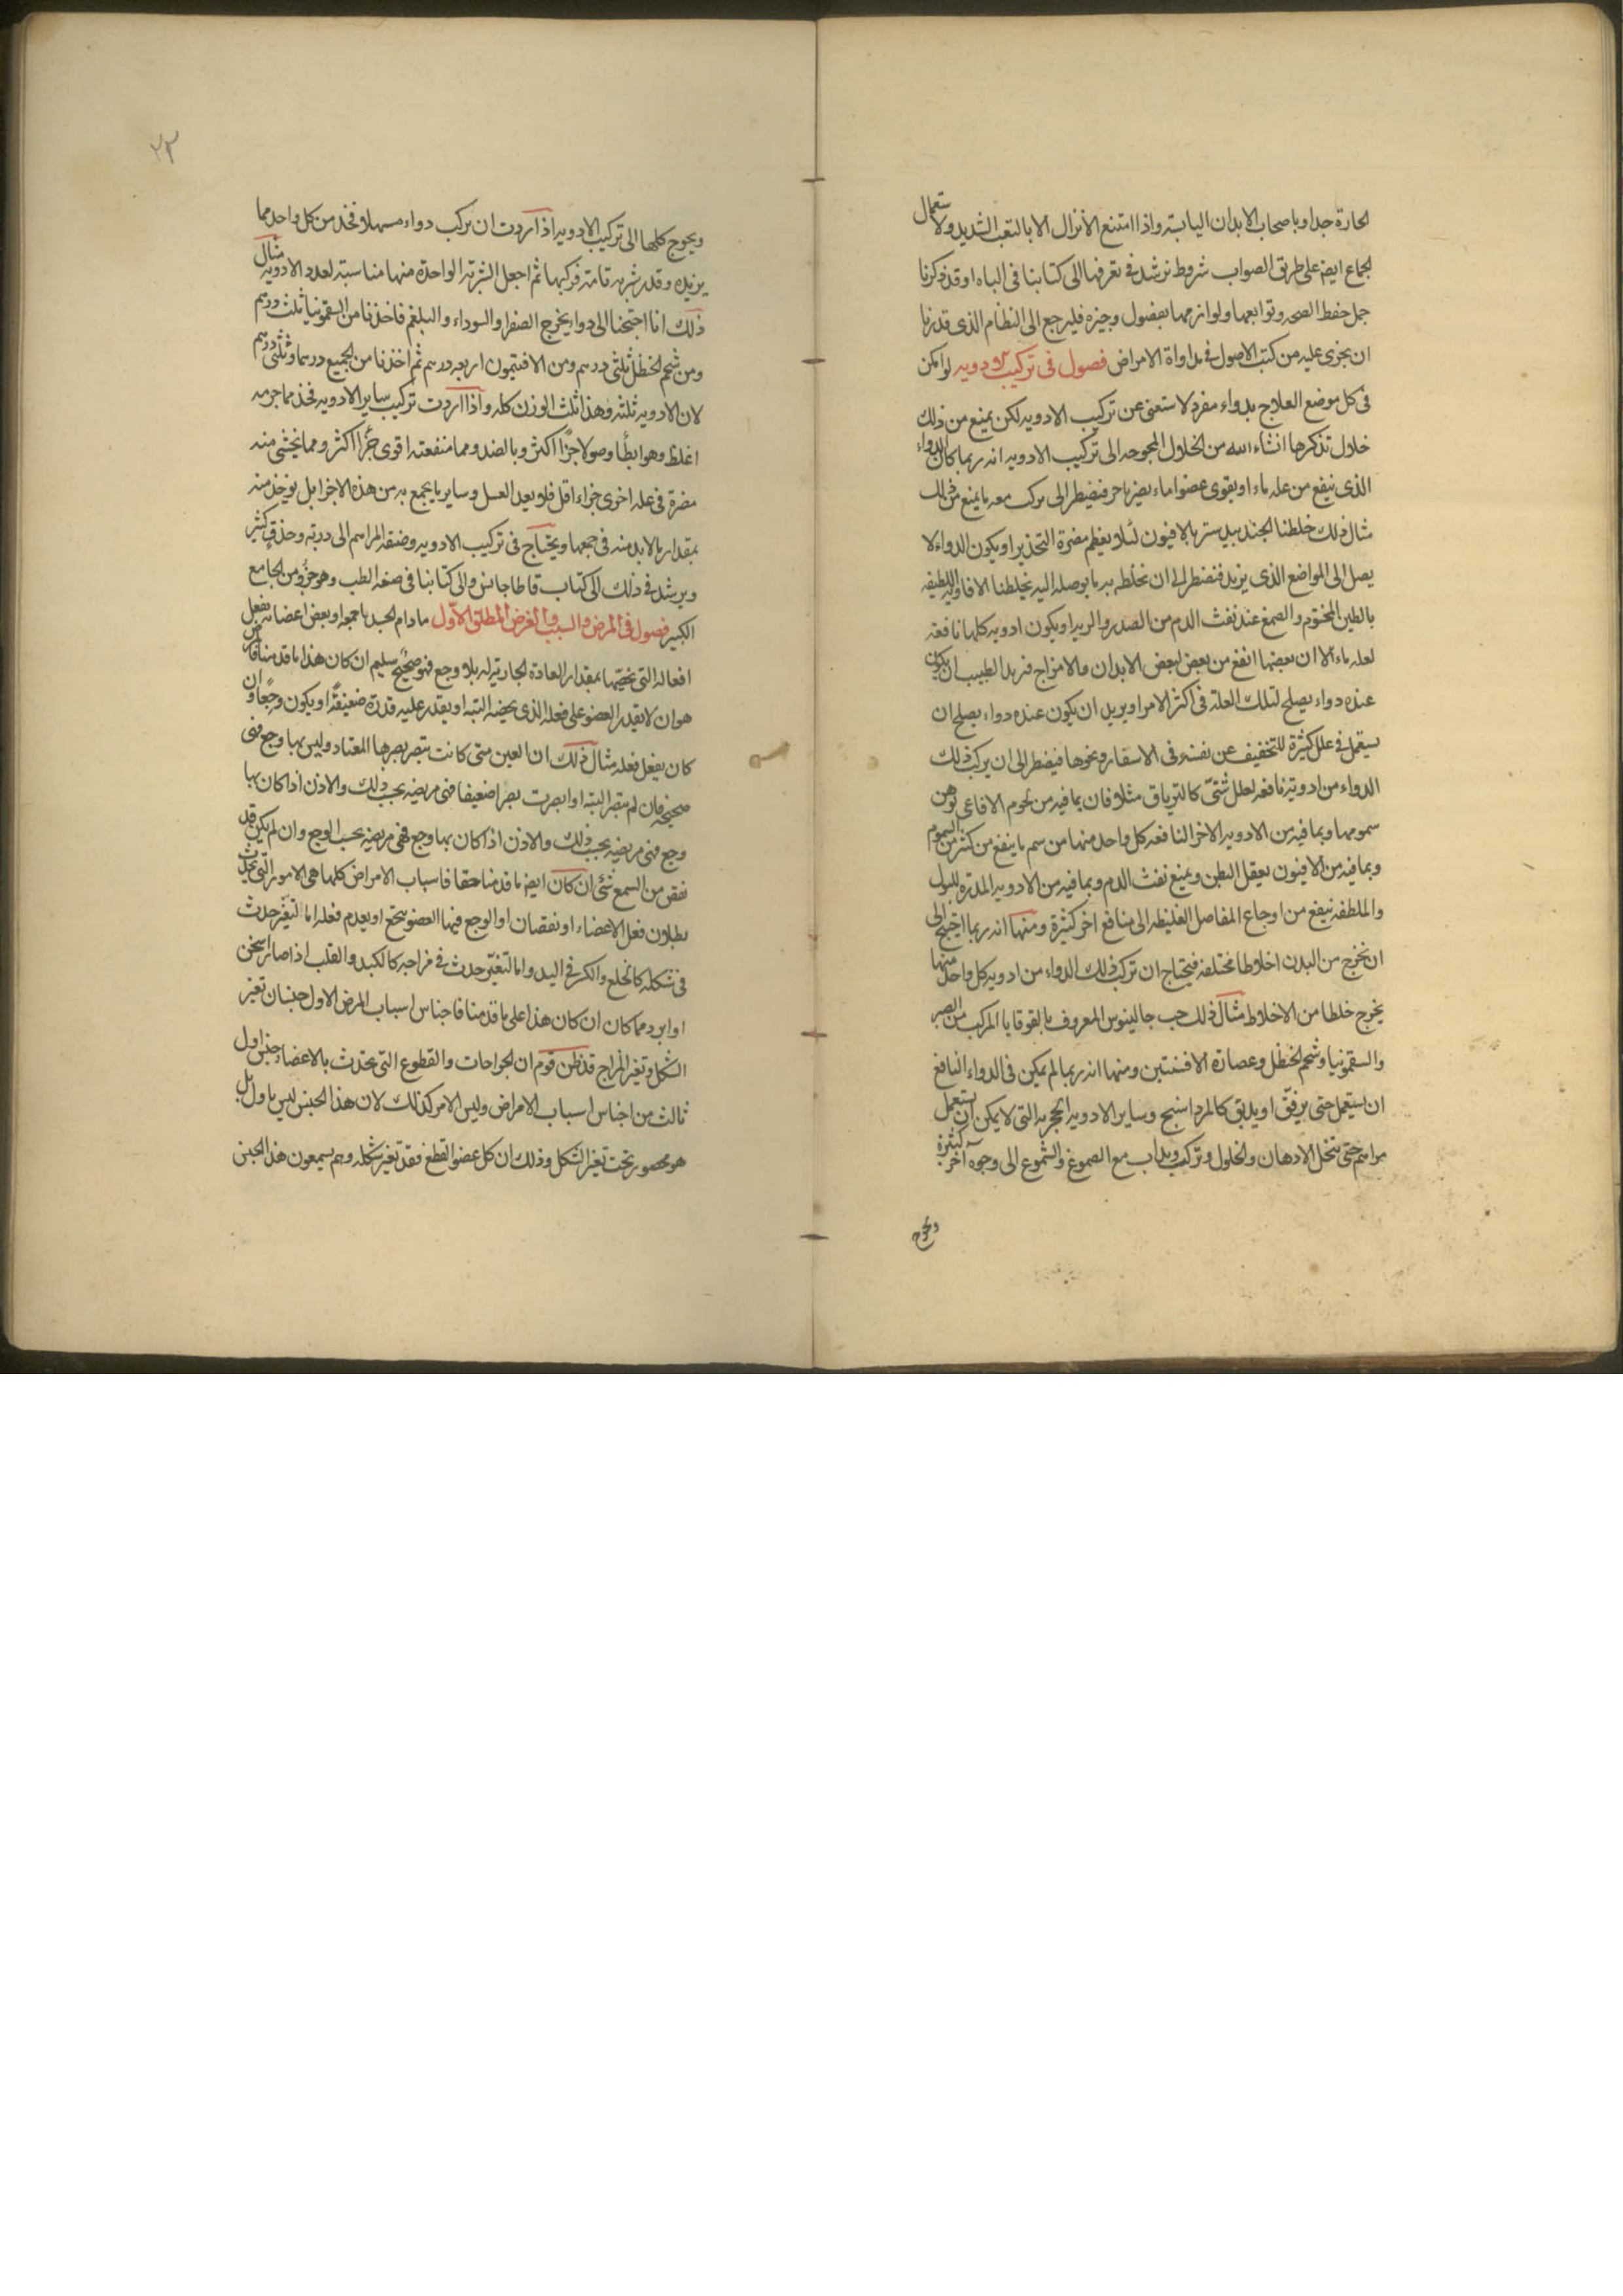 الحارة جدا وباصحاب الابدان اليابسة واذا امتنع الانزال الا بالتعب الشديد ولاستعمال
الجماع ايضا على طريق الصواب شروط نرشد فى تعرفها الى كتابنا فى الباه وقد ذكرنا
جمل حفظ الصحه وتوابعها ولوازمها بفصول وجيزه فليرجع الى النظام الذى قدرنا
ان نجرى عليه من كتب الاصول فى مداواة الامراض فصول فى تركيب الادويه لو امكن
فى كل موضع العلاج بدواء مفرد لاستغنى عن تركيب الادويه لكن يمنع من ذلك
خلال نذكرها انشاء الله من الخلال المحوجه الى تركيب الادويه انه ربما كان الدواء
الذى ينفع من عله ماء او يقوى عضوا ماء يضر باخر فيضطر الى ان يركب معه ما يمنع من ذلك
مثال ذلك خلطنا الجندبيدستر بالافيون لئلا يعظم مضرة التخدير او يكون الدواء لا
يصل الى المواضع الذى يريد فنضطر الى ان نخلط به ما يوصله اليه بخلطنا الافاويه اللطيفه
بالطين المختوم والصمغ عند نفث الدم من الصدر والريه او يكون ادويه كلها نافعة
لعله ماء الا ان بعضها انفع من بعض لبعض الابدان والامزاج فيريد الطبيب ان يكون
عنده دواء يصلح لتلك العلة فى اكثر الامر او يريد ان يكون عنده دواء يصلح ان
يستعمل فى علل كثيرة للتخفيف عن نفسه فى الاسفار ونحوها فيضطر الى ان يركب ذلك
الدواء من ادوية نافعه لعلل شتى كالترياق مثلا فان بما فيه من لحوم الافاعى توهن
سمومها وبما فيه من الادويه الاخر النافعه كل واحد منها من سم ما ينفع من كثير من السموم
وبما فيه من الافيون يعقل البطن ويمنع نفث الدم وبما فيه من الادويه المدرة للبول
والملطفه ينفع من اوجاع المفاصل الغليظه الى منافع اخر كثيرة ومنها انه ربما احتيج الى
ان نخرج من البدن اخلاطا مختلفه فيحتاج ان تركب ذلك الدواء من ادويه كل واحد منها
يخرج خلطا من الاخلاط مثال ذلك حب جالينوس المعروف بالقوقايا المركب من الصبر
والسقمونيا وشحم الحنظل وعصارة الافسنتين ومنها انه ربما لم يمكن فى الدواء النافع
ان يستعمل حتى يرفق او يدبق كالمرداسنج وساير الادويه الحجريه التى لا يمكن ان يستعمل
مراهم حتى تنحل الادهان والخلول وتركب ويذاب مع الصموغ والشموع الى وجوه اخر كثيرة
ويحوج
٢٣
ويحوج كلها الى تركيب الادويه اذا اردت ان تركب دواء مسهلا فخذ من كل واحد مما
يريده وقدر شربه تامة فركبها ثم اجعل الشربة الواحدة منها مناسبة لعدد الادويه مثال
ذلك انا احتجنا الى دوا يخرج الصفرا والسوداء والبلغم فاخذنا من السقمونيا ثلث درهم
ومن شحم الحنظل ثلثى درهم ومن الافتيمون اربعه درهم ثم اخذنا من الجميع درهما وثلثى درهم
لان الادويه ثلثه وهذا ثلث الوزن كله واذا اردت تركيب ساير الادويه فخذ مما جرمه
اغلظ وهو ابطأ وصولا جزا اكثر وبالضد ومما منفعته اقوى جزأ اكثر ومما يخشى منه
مضرة فى عله اخرى جزاء اقل فلا يعد العسل وساير ما يجمع به من هذه الاجزا بل يوخذ منه
بمقدار ما لا بد منه فى جمعها ويحتاج فى تركيب الادويه وصنعة المراهم الى دربة وحذق كثير
ويرشد فى ذلك الى كتاب قاطاجانس والى كتابنا فى صفه الطب وهو جزؤ من الجامع
الكبير فصول فى المرض والسبب والغرض المطلق الاول مادام الجسد باجمعه او بعض اعضائه يفعل
افعاله التى تخصها بمقدار العادة الجارية له بلا وجع فهو صحيح سليم ان كان هذا ما قدمنا فالمرض
هو ان لا يقدر العضو على فعله الذى يخصه البته او يقدر عليه قدرة ضعيفة او يكون وجعا وان
كان يفعل فعله مثال ذلك ان العين متى كانت تبصر بصرها المعتاد وليس بها وجع فهى
صحيحة فان لم تبصر البته او ابصرت بصرا ضعيفا فهى مريضه بحسب ذلك والاذن اذا كان بها
وجع فهى مريضه بحسب ذلك والاذن اذا كان بها وجع فهى مريضه بحسب الوجع وان لم يكن قد
نقص من السمع شئى ان كان ايضا ما قدمنا حقا فاسباب الامراض كلها هى الامور التى تحدث
بطلان فعل الاعضاء او نقصان او الوجع فيها العضو يتوجع او يعدم فعله اما لتغير حدث
فى شكله كالخلع والكسر فى اليد واما لتغير حدث فى مزاجه كالكبد والقلب اذا صار اسخن
او ابرد مما كان ان كان هذا على ما قدمنا فاجناس اسباب المرض الاول جنسان تغير
الشكل وتغير المزاج قد ظن قوم ان الجراحات والقطوع التى تحدث بالاعضاء جنس اول
ثالث من اجناس اسباب الامراض وليس الامر كذلك لان هذا الجنس ليس باول بل
هو محصور تحت تغير الشكل وذلك ان كل عضو انقطع فقد تغير شكله وهم يسمعون هذا الجنس